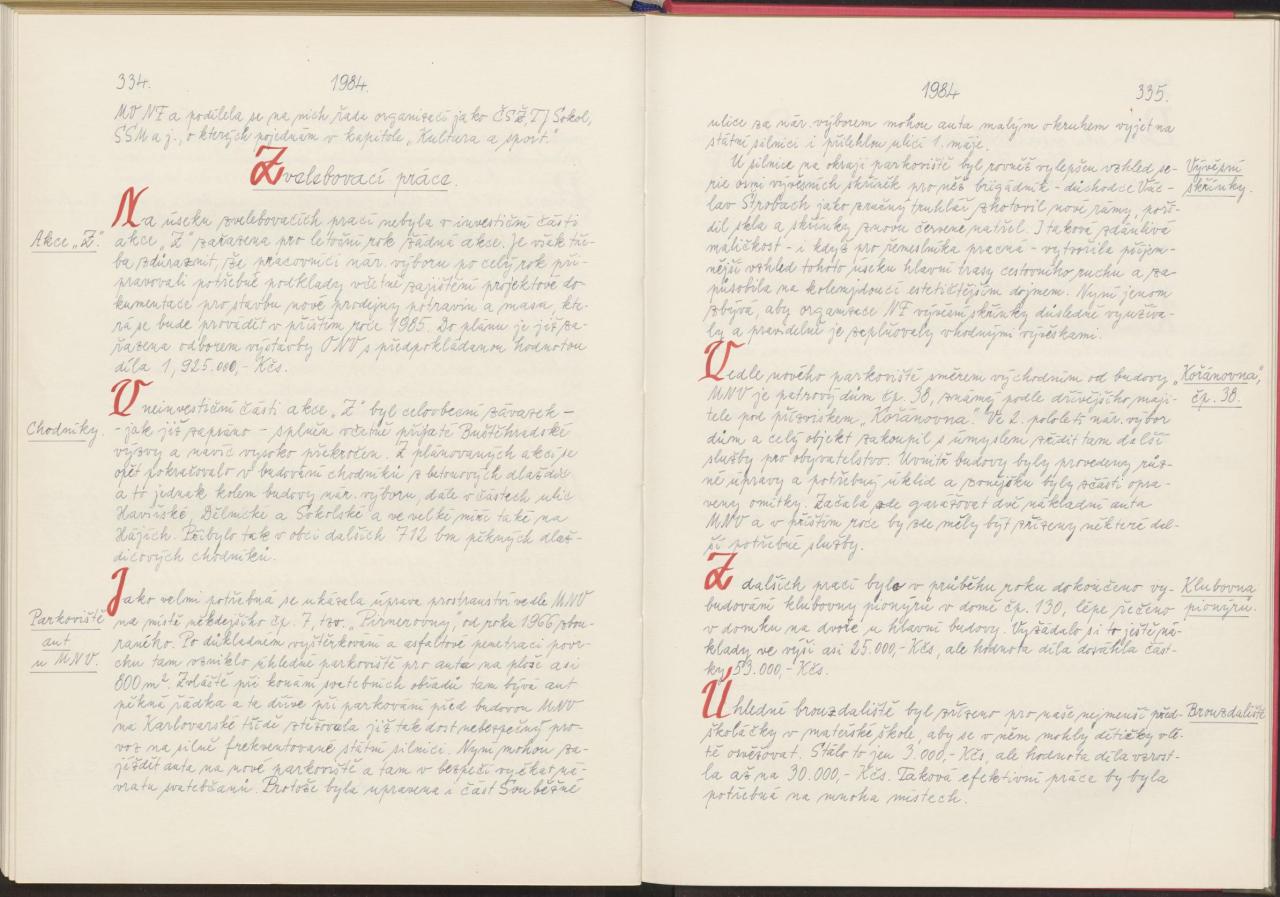 334.
1984.
MV NF a podílela se na nich řada organizací jako ČSŽ, TJ Sokol,
SSM a j., o kterých pojednám v kapitole „Kultura a sport."
Zvelebovací práce.
Akce „Z".
Na úseku zvelebovacích prací nebyla v investiční části
akce „Z" zařazena pro letošní rok žádná akce. Je však tře-
ba zdůraznit, že pracovníci nár. výboru po celý rok při-
pravovali potřebné podklady včetně zajištění projektové do-
kumentace pro stavbu nové prodejny potravin a masa, kte-
rá se bude provádět v příštím roce 1985. Do plánu je již za-
řazena odborem výstavby ONV s předpokládanou hodnotou
díla 1,925.000,- Kčs.
Chodníky.
V neinvestiční části akce „Z" byl celoobecní závazek -
- jak již zapsáno - splněn včetně přijaté Buštěhradské
výzvy a navíc vysoko překročen. Z plánovaných akcí se
opět pokračovalo v budování chodníků z betonových dlaždic
a to jednak kolem budovy nár. výboru, dále v částech ulic
Havířské, Dělnické a Sokolské a ve velké míře také na
Hájích. Přibylo tak v obci dalších 712 bm pěkných dlaž-
dicových chodníků.
Parkoviště
aut
u MNV.
Jako velmi potřebná se ukázala úprava prostranství vedle MNV
na místě někdejšího čp. 7, tzv. „Pirnerovny", od roku 1966 zbou-
raného. Po důkladném vyštěrkování a asfaltové penetraci povr-
chu tam vzniklo úhledné parkoviště pro auta na ploše asi
800 m². Zvláště při konání svatebních obřadů tam bývá aut
pěkná řádka a ta dříve při parkování před budovou MNV
na Karlovarské třídě ztěžovala již tak dost nebezpečný pro-
voz na silně frekventované státní silnici. Nyní mohou za-
jíždět auta na nové parkoviště a tam v bezpečí vyčkat ná-
vratu svatebčanů. Protože byla upravena i část Souběžné
1984
335.
ulice za nár. výborem mohou auta malým okruhem vyjet na
státní silnici i přilehlou ulicí 1. máje.
Vývěsní
skřínky.
U silnice na okraji parkoviště byl rovněž vylepšen vzhled se-
rie osmi vývěsních skříněk pro něž brigádník - důchodce Vác-
lav Strobach jako zručný truhlář zhotovil nové rámy, poří-
dil skla a skřínky znovu červeně natřel. I taková zdánlivá
maličkost - i když pro řemeslníka pracná - vytvořila příjem-
nější vzhled tohoto úseku hlavní trasy cestovního ruchu a za-
působila na kolemjdoucí estetičtějším dojmem. Nyní jenom
zbývá, aby organizace NF vývěsní skřínky důsledně využíva-
ly a pravidelně je zaplňovaly vhodnými vývěskami.
„Kořánovna",
čp. 38.
Vedle nového parkoviště směrem východním od budovy
MNV je patrový dům čp. 38, známý podle dřívějšího maji-
tele pod přízviskem „Kořánovna". Ve 2. pololetí nár. výbor
dům a celý objekt zakoupil s úmyslem zřídit tam další
služby pro obyvatelstvo. Uvnitř budovy byly provedeny růz-
né úpravy a potřebný úklid a zvnějšku byly zčásti opra-
veny omítky. Začala zde garážovat dvě nákladní auta
MNV a v příštím roce by zde měly být zřízeny některé dal-
ší potřebné služby.
Klubovna
pionýrů.
Z dalších prací bylo v průběhu roku dokončeno vy-
budování klubovny pionýrů v domě čp. 130, lépe řečeno
v domku na dvoře u hlavní budovy. Vyžádalo si to ještě ná-
klady ve výši asi 25.000,- Kčs, ale hodnota díla dosáhla část-
ky 53.000,- Kčs.
Brouzdaliště
Úhledné brouzdaliště bylo zřízeno pro naše nejmenší před-
školáčky v mateřské škole, aby se v něm mohly dětičky v lé-
tě osvěžovat. Stálo to jen 3.000,- Kčs, ale hodnota díla vzrost-
la až na 30.000,- Kčs. Taková efektivní práce by byla
potřebná na mnoha místech.